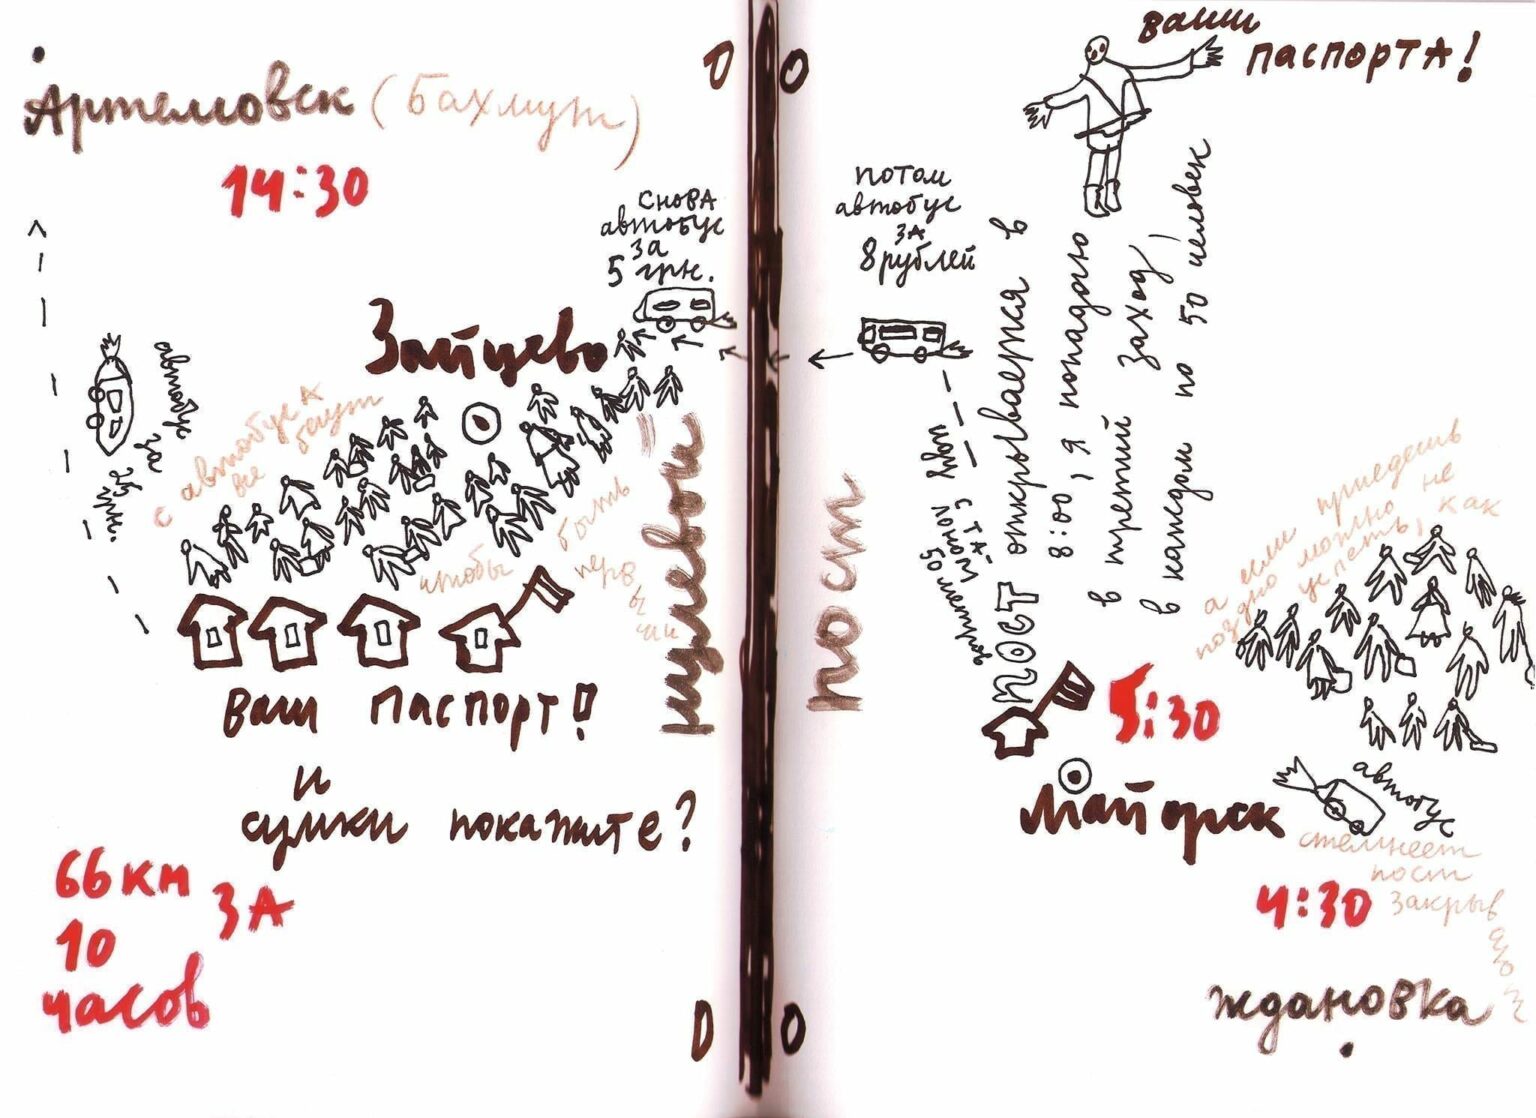 Артемовск (Бахмут)
14:30
снова
автобус
за
5 грн.
Зайцево
автобус за
с автобуса
все бегут
чтобы
быть
первыми
Ваш паспорт!
и
сумки покажите?
66 км
за
10
часов
0
0
нулевой
0
0
пост
ваши
паспорта!
потом
автобус
за
8 рублей
ПОСТ открывается в
8:00, я попадаю
в третий заход,
в каждом по 50 человек
50 метров
а если приедешь
поздно можно не
успеть, как
5:30
Майорск
автобус
стемнеет
пост
закрыв
4:30
Ждановка